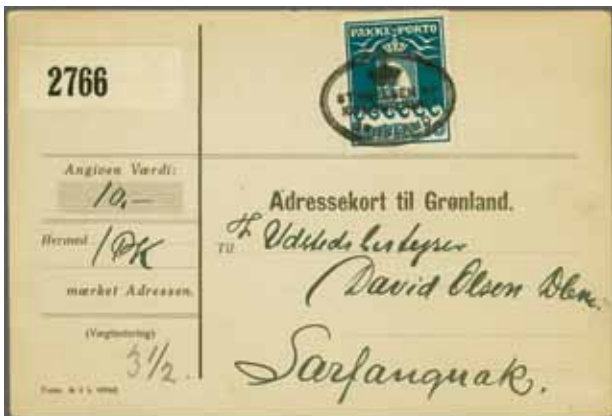 2766
PAKKE-PORTO
Angiven Værdi:
10,-
Hermed 1 PK
mærket Adressen.
(Vægtnotering)
3 1/2.
Adressekort til Grønland.
Til Hr. Udstedsbestyrer
David Olsen Dbm.
Sarfanguak.